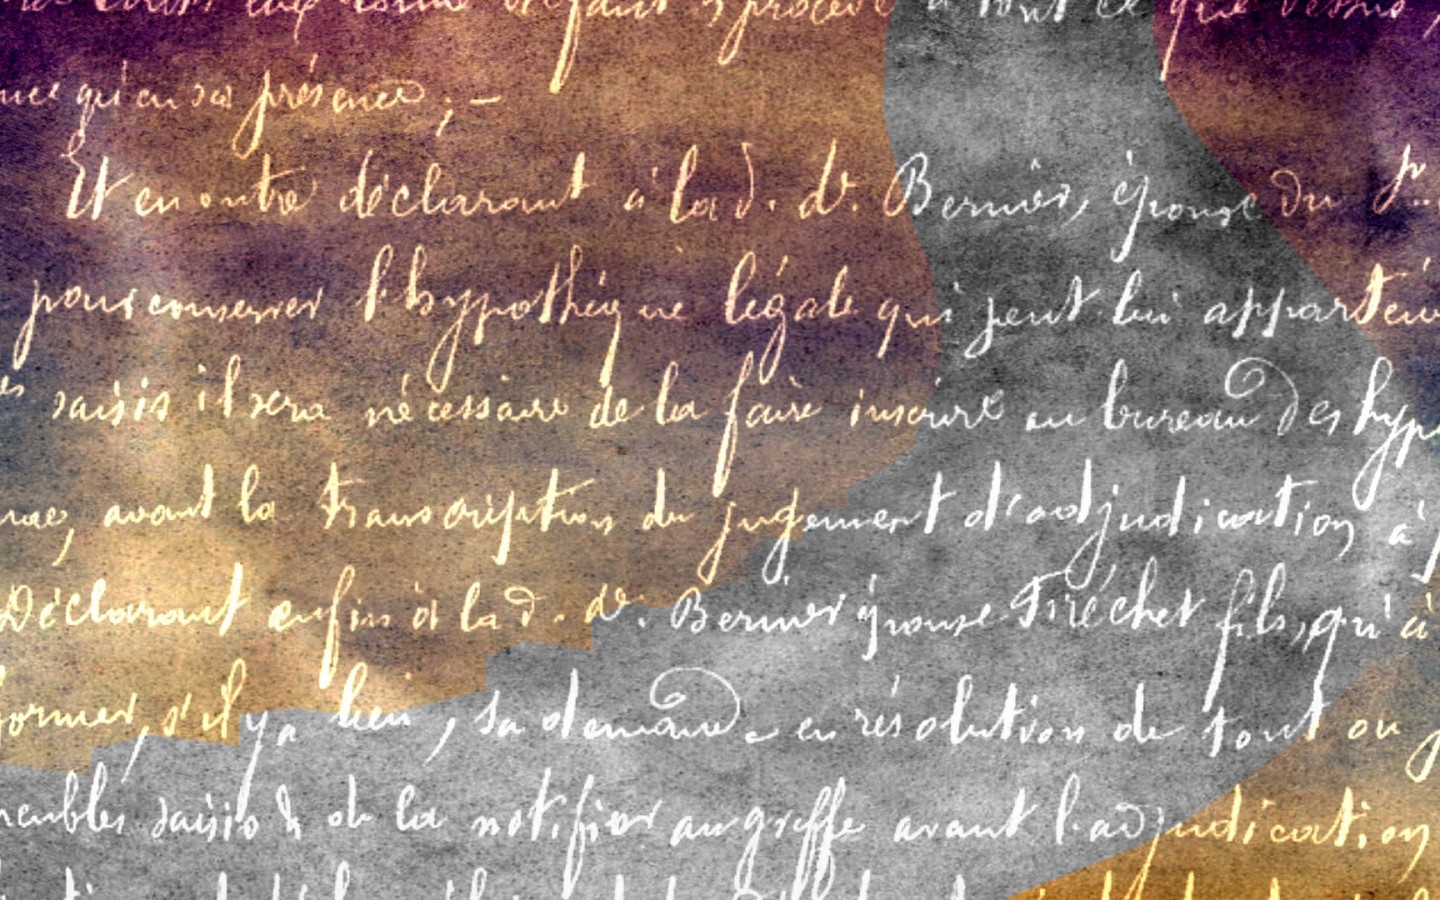 qu'en sa présence ; —
Et en outre déclarant à la d. de. Bernier, épouse du
pour conserver l'hypothèque légale qui peut lui apparten
saisis il sera nécessaire de la faire inscrire au bureau des hyp
avant la transcription du jugement d'adjudication à
Déclarant enfin à la d. de. Bernier épouse Tréchet fils, qu'à
former, s'il y a lieu, sa demande en résolution de tout ou
meubles saisis & de la notifier au greffe avant l'adjudication